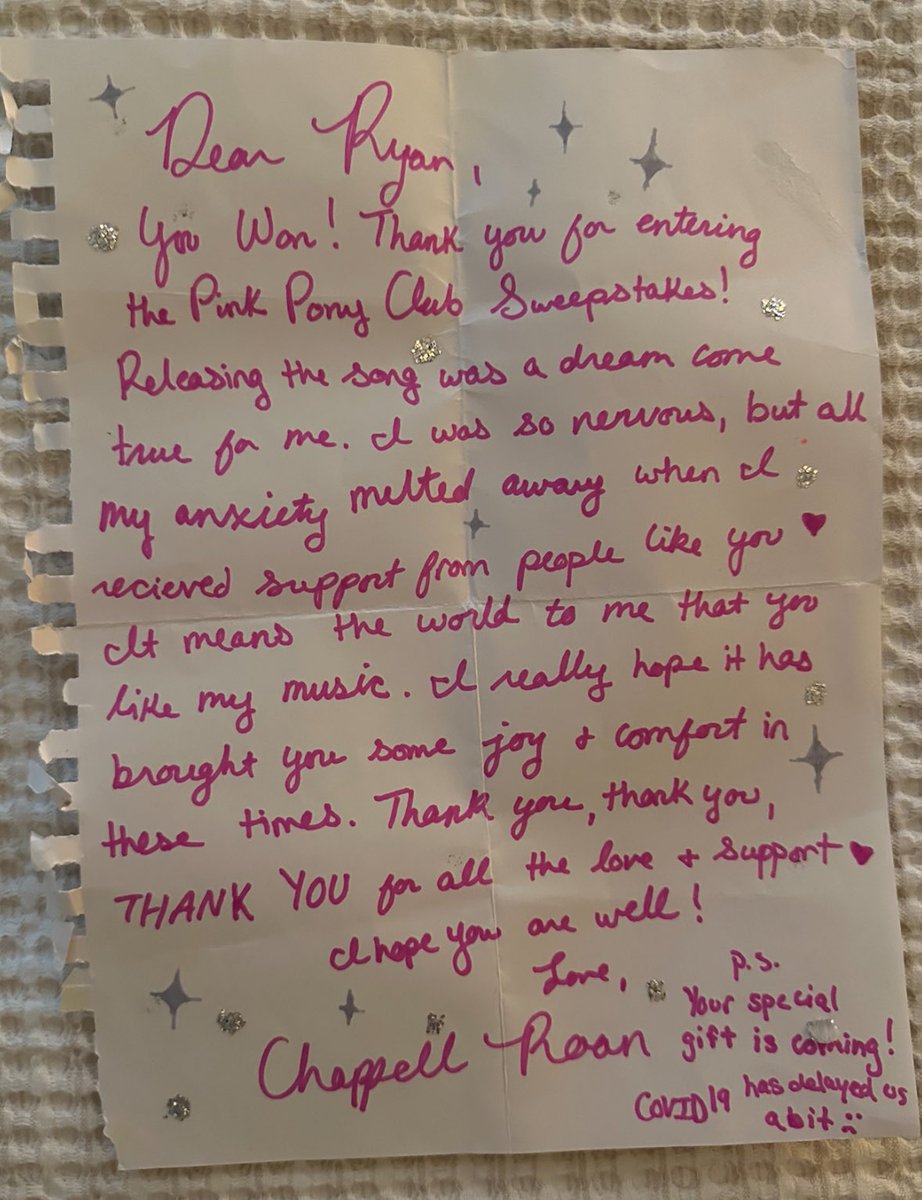 Dear Ryan,
You Won! Thank you for entering
the Pink Pony Club Sweepstakes!
Releasing the song was a dream come
true for me. I was so nervous, but all
my anxiety melted away when I
recieved support from people like you ♥
It means the world to me that you
like my music. I really hope it has
brought you some joy + comfort in
these times. Thank you, thank you,
THANK YOU for all the love + support ♥
I hope you are well!
Love,
Chappell Roan
p.s.
Your special
gift is coming!
COVID19 has delayed us
a bit :(